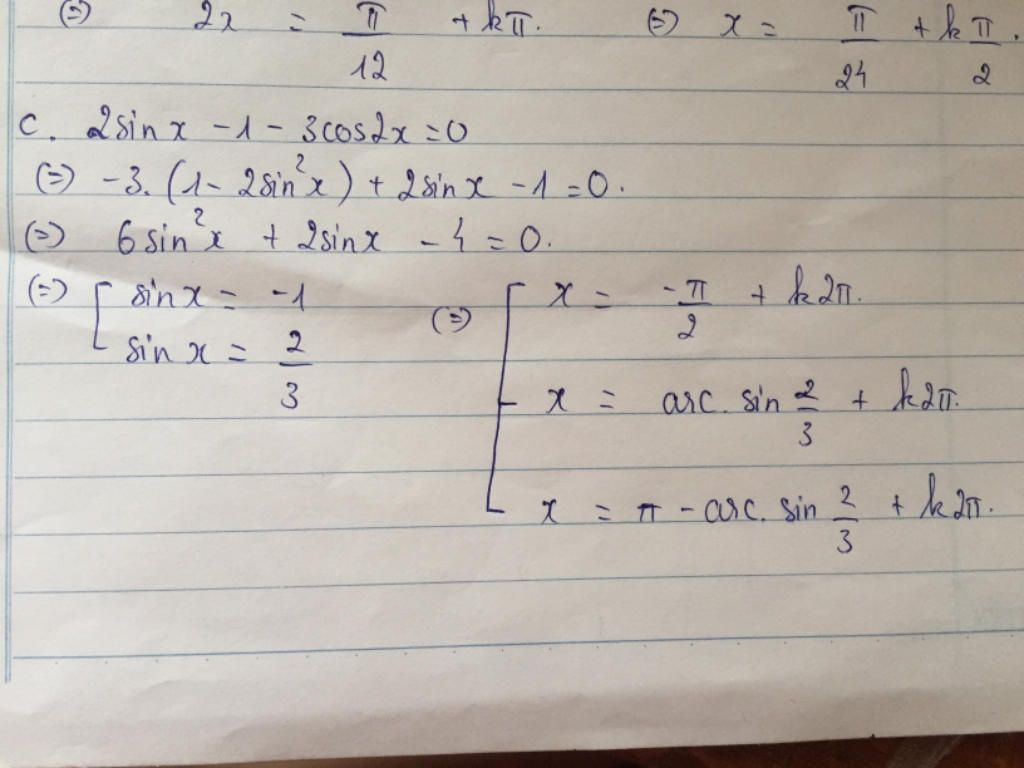 (=) 2x = π/12 + kπ. (=) x = π/24 + k π/2.
c. 2sinx - 1 - 3cos2x = 0
(=) -3.(1 - 2sin²x) + 2sinx - 1 = 0.
(=) 6sin²x + 2sinx - 4 = 0.
(=) [ sinx = -1 (=) [ x = -π/2 + k2π.
sinx = 2/3
x = arc.sin 2/3 + k2π.
x = π - arc.sin 2/3 + k2π.